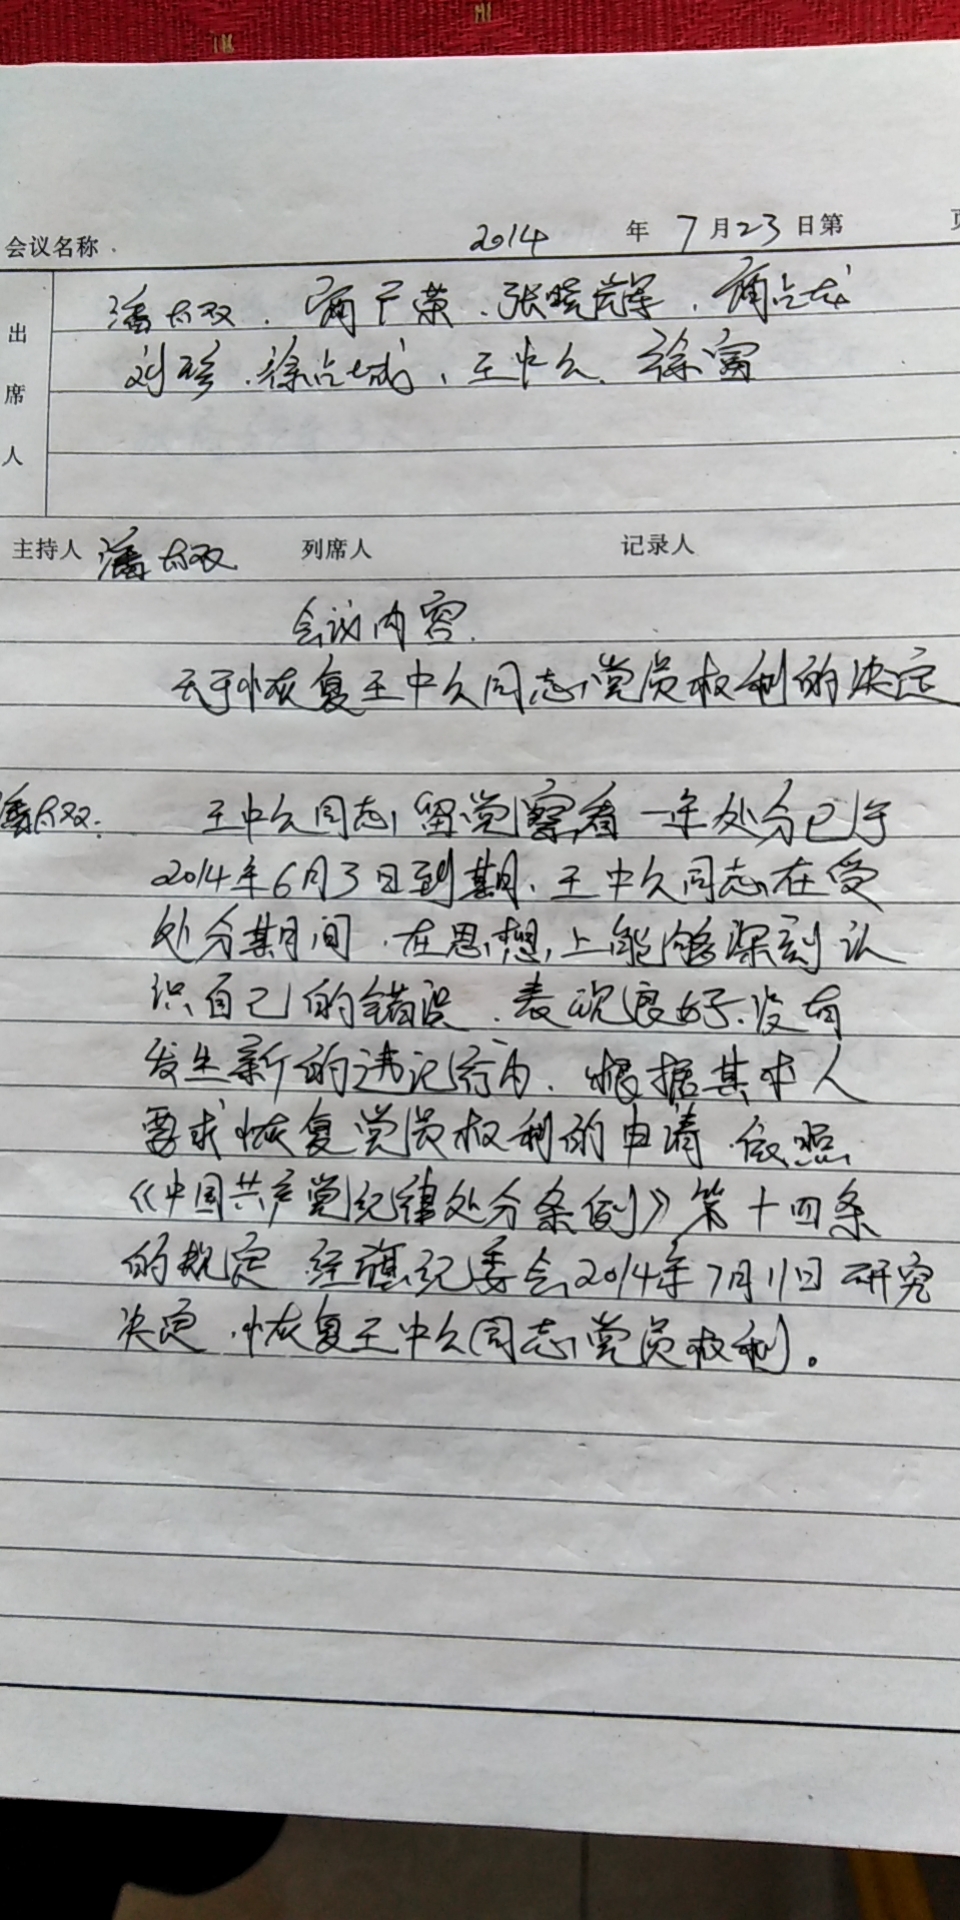 会议名称 2014 年 7 月 23 日 第 页
出席人
潘太双、 广荣、张晓辉、
刘珍、徐占城、王中久、徐富
主持人 潘太双 列席人 记录人
会议内容
关于恢复王中久同志党员权利的决定
潘太双: 王中久同志留党察看一年处分已于
2014年6月3日到期、王中久同志在受
处分期间、在思想上能够深刻认
识自己的错误、表现良好、没有
发生新的违记行为、根据其本人
要求恢复党员权利的申请 依照
《中国共产党纪律处分条例》第十四条
的规定 经旗纪委会2014年7月11日研究
决定、恢复王中久同志党员权利。